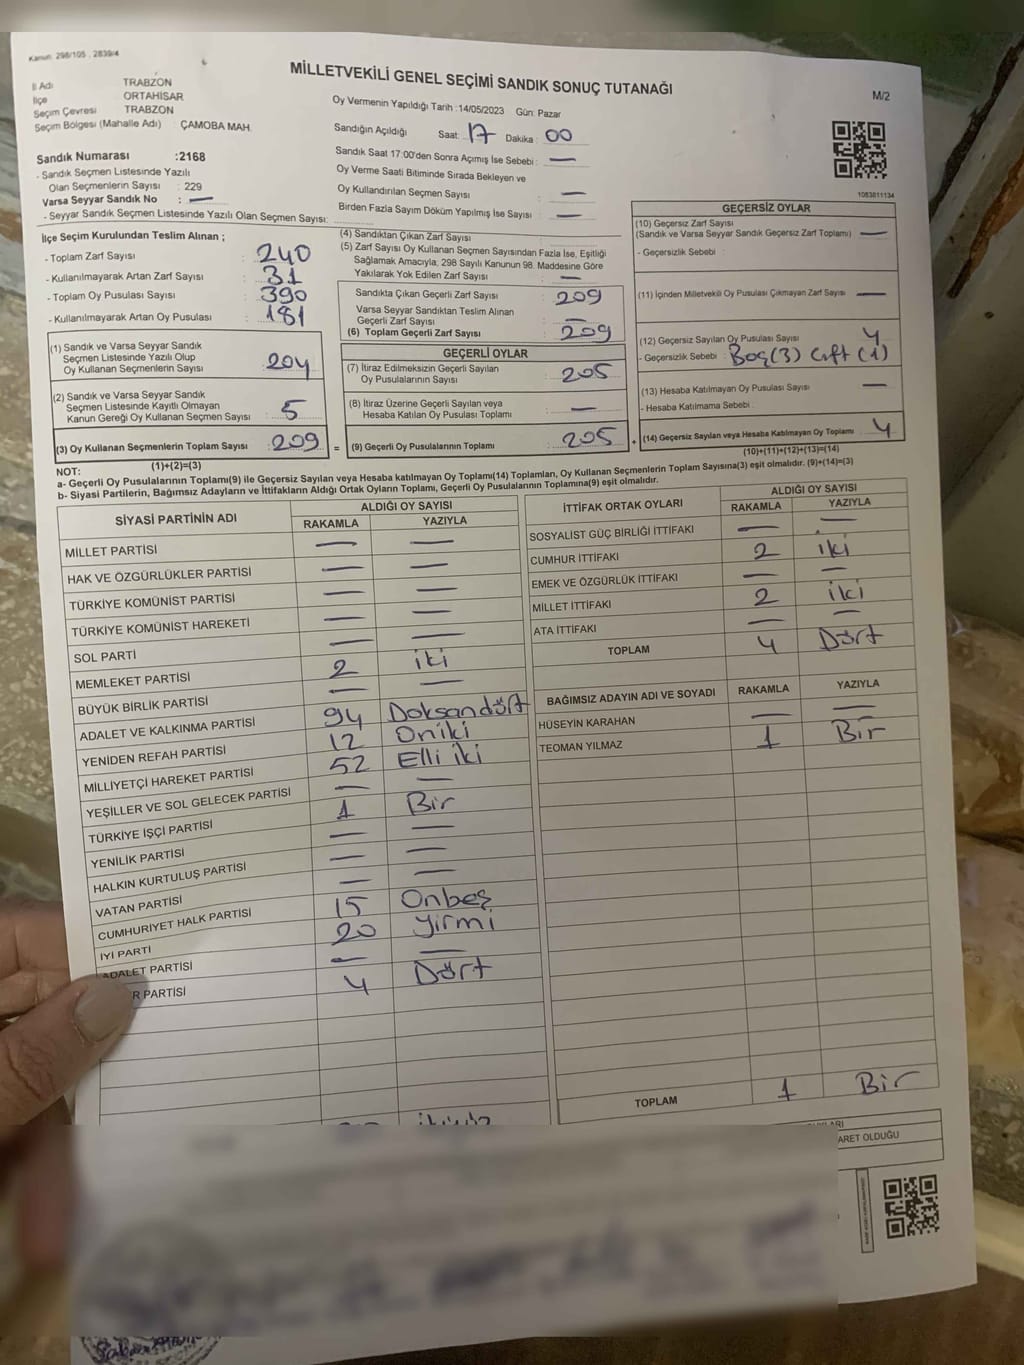 Kanun: 298/105 , 2839/4
MİLLETVEKİLİ GENEL SEÇİMİ SANDIK SONUÇ TUTANAĞI
M/2
İl Adı TRABZON
İlçe ORTAHİSAR
Seçim Çevresi TRABZON
Seçim Bölgesi (Mahalle Adı) : ÇAMOBA MAH.
Oy Vermenin Yapıldığı Tarih :14/05/2023 Gün: Pazar
Sandığın Açıldığı Saat: 17 Dakika : 00
Sandık Saat 17:00'den Sonra Açımış İse Sebebi : —
Oy Verme Saati Bitiminde Sırada Bekleyen ve
Oy Kullandırılan Seçmen Sayısı —
Birden Fazla Sayım Döküm Yapılmış İse Sayısı : —
Sandık Numarası :2168
- Sandık Seçmen Listesinde Yazılı
Olan Seçmenlerin Sayısı : 229
Varsa Seyyar Sandık No : —
- Seyyar Sandık Seçmen Listesinde Yazılı Olan Seçmen Sayısı:
1083811134
İlçe Seçim Kurulundan Teslim Alınan ;
- Toplam Zarf Sayısı : 240
- Kullanılmayarak Artan Zarf Sayısı : 31
- Toplam Oy Pusulası Sayısı : 390
- Kullanılmayarak Artan Oy Pusulası : 181
(1) Sandık ve Varsa Seyyar Sandık
Seçmen Listesinde Yazılı Olup
Oy Kullanan Seçmenlerin Sayısı : 204
(2) Sandık ve Varsa Seyyar Sandık
Seçmen Listesinde Kayıtlı Olmayan
Kanun Gereği Oy Kullanan Seçmen Sayısı : 5
(3) Oy Kullanan Seçmenlerin Toplam Sayısı : 209
(1)+(2)=(3)
(4) Sandıktan Çıkan Zarf Sayısı :
(5) Zarf Sayısı Oy Kullanan Seçmen Sayısından Fazla İse, Eşitliği
Sağlamak Amacıyla, 298 Sayılı Kanunun 98. Maddesine Göre
Yakılarak Yok Edilen Zarf Sayısı : —
Sandıkta Çıkan Geçerli Zarf Sayısı : 209
Varsa Seyyar Sandıktan Teslim Alınan
Geçerli Zarf Sayısı : —
(6) Toplam Geçerli Zarf Sayısı : 209
GEÇERLİ OYLAR
(7) İtiraz Edilmeksizin Geçerli Sayılan
Oy Pusulalarının Sayısı : 205
(8) İtiraz Üzerine Geçerli Sayılan veya
Hesaba Katılan Oy Pusulası Toplamı : —
= (9) Geçerli Oy Pusulalarının Toplamı : 205
GEÇERSİZ OYLAR
(10) Geçersiz Zarf Sayısı
(Sandık ve Varsa Seyyar Sandık Geçersiz Zarf Toplamı) : —
- Geçersizlik Sebebi :
(11) İçinden Milletvekili Oy Pusulası Çıkmayan Zarf Sayısı : —
(12) Geçersiz Sayılan Oy Pusulası Sayısı : 4
- Geçersizlik Sebebi : Boş(3) Çift (1)
(13) Hesaba Katılmayan Oy Pusulası Sayısı : —
- Hesaba Katılmama Sebebi :
+ (14) Geçersiz Sayılan veya Hesaba Katılmayan Oy Toplamı : 4
(10)+(11)+(12)+(13)=(14)
NOT:
a- Geçerli Oy Pusulalarının Toplamı(9) ile Geçersiz Sayılan veya Hesaba katılmayan Oy Toplamı(14) Toplamları, Oy Kullanan Seçmenlerin Toplam Sayısına(3) eşit olmalıdır. (9)+(14)=(3)
b- Siyasi Partilerin, Bağımsız Adayların ve İttifakların Aldığı Ortak Oyların Toplamı, Geçerli Oy Pusulalarının Toplamına(9) eşit olmalıdır.
SİYASİ PARTİNİN ADI ALDIĞI OY SAYISI
RAKAMLA YAZIYLA
MİLLET PARTİSİ — —
HAK VE ÖZGÜRLÜKLER PARTİSİ — —
TÜRKİYE KOMÜNİST PARTİSİ — —
TÜRKİYE KOMÜNİST HAREKETİ — —
SOL PARTİ — —
MEMLEKET PARTİSİ 2 iki
BÜYÜK BİRLİK PARTİSİ — —
ADALET VE KALKINMA PARTİSİ 94 Doksandört
YENİDEN REFAH PARTİSİ 12 Oniki
MİLLİYETÇİ HAREKET PARTİSİ 52 Elli iki
YEŞİLLER VE SOL GELECEK PARTİSİ — —
TÜRKİYE İŞÇİ PARTİSİ 1 Bir
YENİLİK PARTİSİ — —
HALKIN KURTULUŞ PARTİSİ — —
VATAN PARTİSİ — —
CUMHURİYET HALK PARTİSİ 15 Onbeş
İYİ PARTİ 20 Yirmi
ADALET PARTİSİ — —
R PARTİSİ 4 Dört
İTTİFAK ORTAK OYLARI ALDIĞI OY SAYISI
RAKAMLA YAZIYLA
SOSYALİST GÜÇ BİRLİĞİ İTTİFAKI — —
CUMHUR İTTİFAKI 2 iki
EMEK VE ÖZGÜRLÜK İTTİFAKI — —
MİLLET İTTİFAKI 2 iki
ATA İTTİFAKI — —
TOPLAM 4 Dört
BAĞIMSIZ ADAYIN ADI VE SOYADI RAKAMLA YAZIYLA
HÜSEYİN KARAHAN — —
TEOMAN YILMAZ 1 Bir
TOPLAM 1 Bir
ARET OLDUĞU